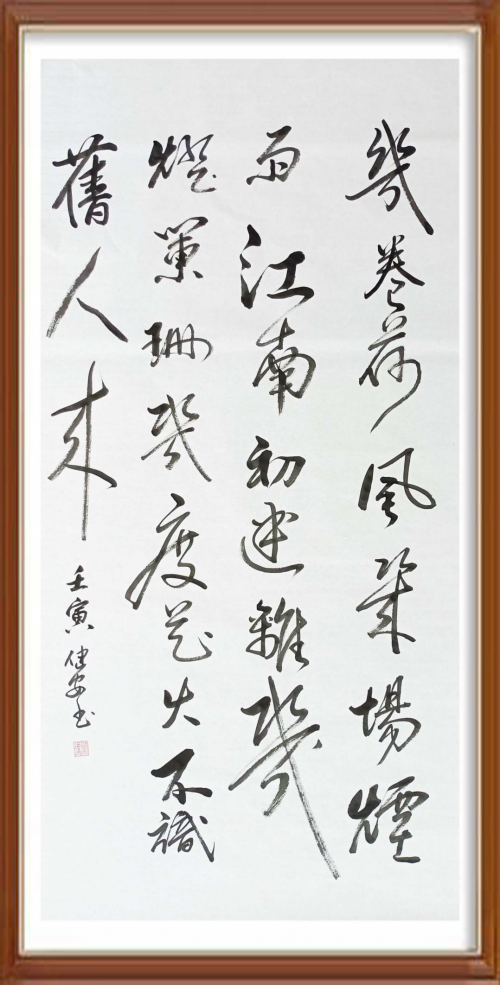 幾卷荷風幾場煙
雨江南初迷離幾
燈闌珊幾度花火不識
舊人來
壬寅健安书